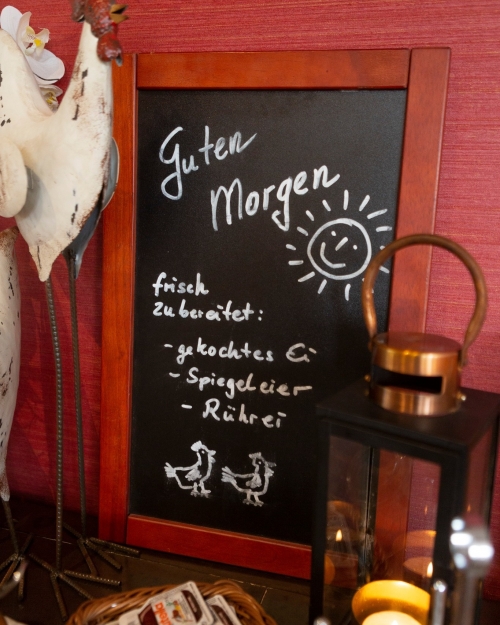 Guten
Morgen
frisch
zubereitet:
- gekochtes Ei
- Spiegeleier
- Rührei